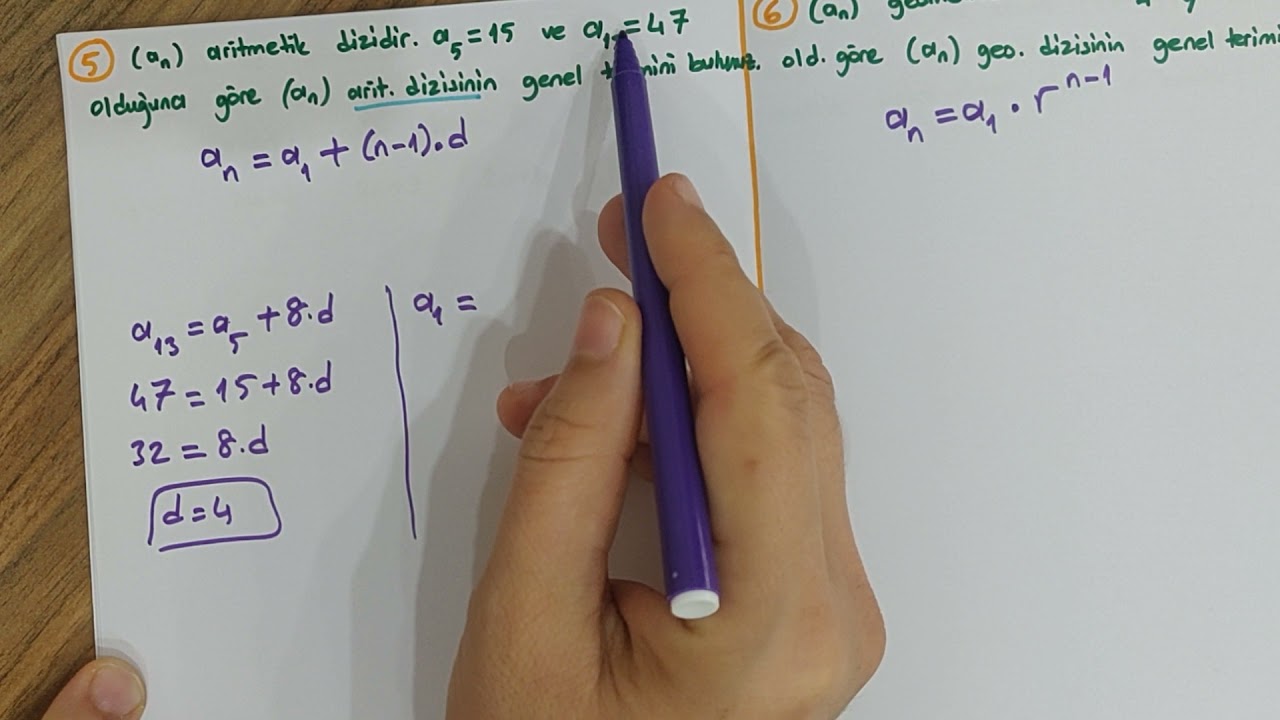 5 (aₙ) aritmetik dizidir. a₅=15 ve a₁ =47
olduğuna göre (aₙ) arit. dizisinin genel bulunuz.
aₙ = a₁ + (n-1).d
a₁₃ = a₅ + 8.d
47 = 15 + 8.d
32 = 8.d
d = 4
a₁ =
6 (aₙ)
old. göre (aₙ) geo. dizisinin genel terimi
aₙ = a₁ . rⁿ⁻¹